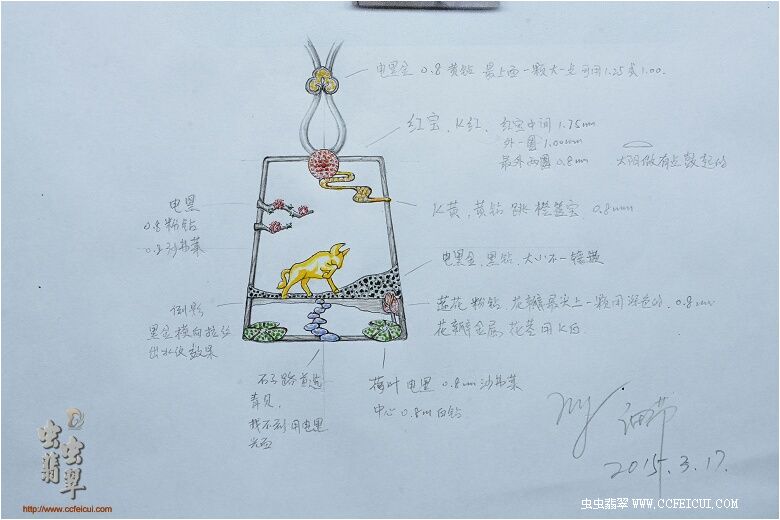 电黑金 0.8黄钻 最上面一颗大一点可用1.25或1.00.
红宝、K红, 红宝中间1.75mm
外一圈1.00mm
最外两圈0.8mm 太阳做有点鼓起的
K黄、黄钻跳橙蓝宝 0.8mm
电黑
0.8粉钻
0.8沙弗莱
电黑金、黑钻、大小不一镶嵌
莲花 粉钻 花瓣最尖上一颗用深色的、0.8mm
花瓣金属、花茎用K白
倒影
黑金横向拉丝
出水纹效果
石子路
青贝,
找不到用电黑
光面
荷叶电黑 0.8mm沙弗莱
中心 0.8m白钻
2015.3.17.
虫虫翡翠
http://www.ccfeicui.com
虫虫翡翠 WWW.CCFEICUI.COM